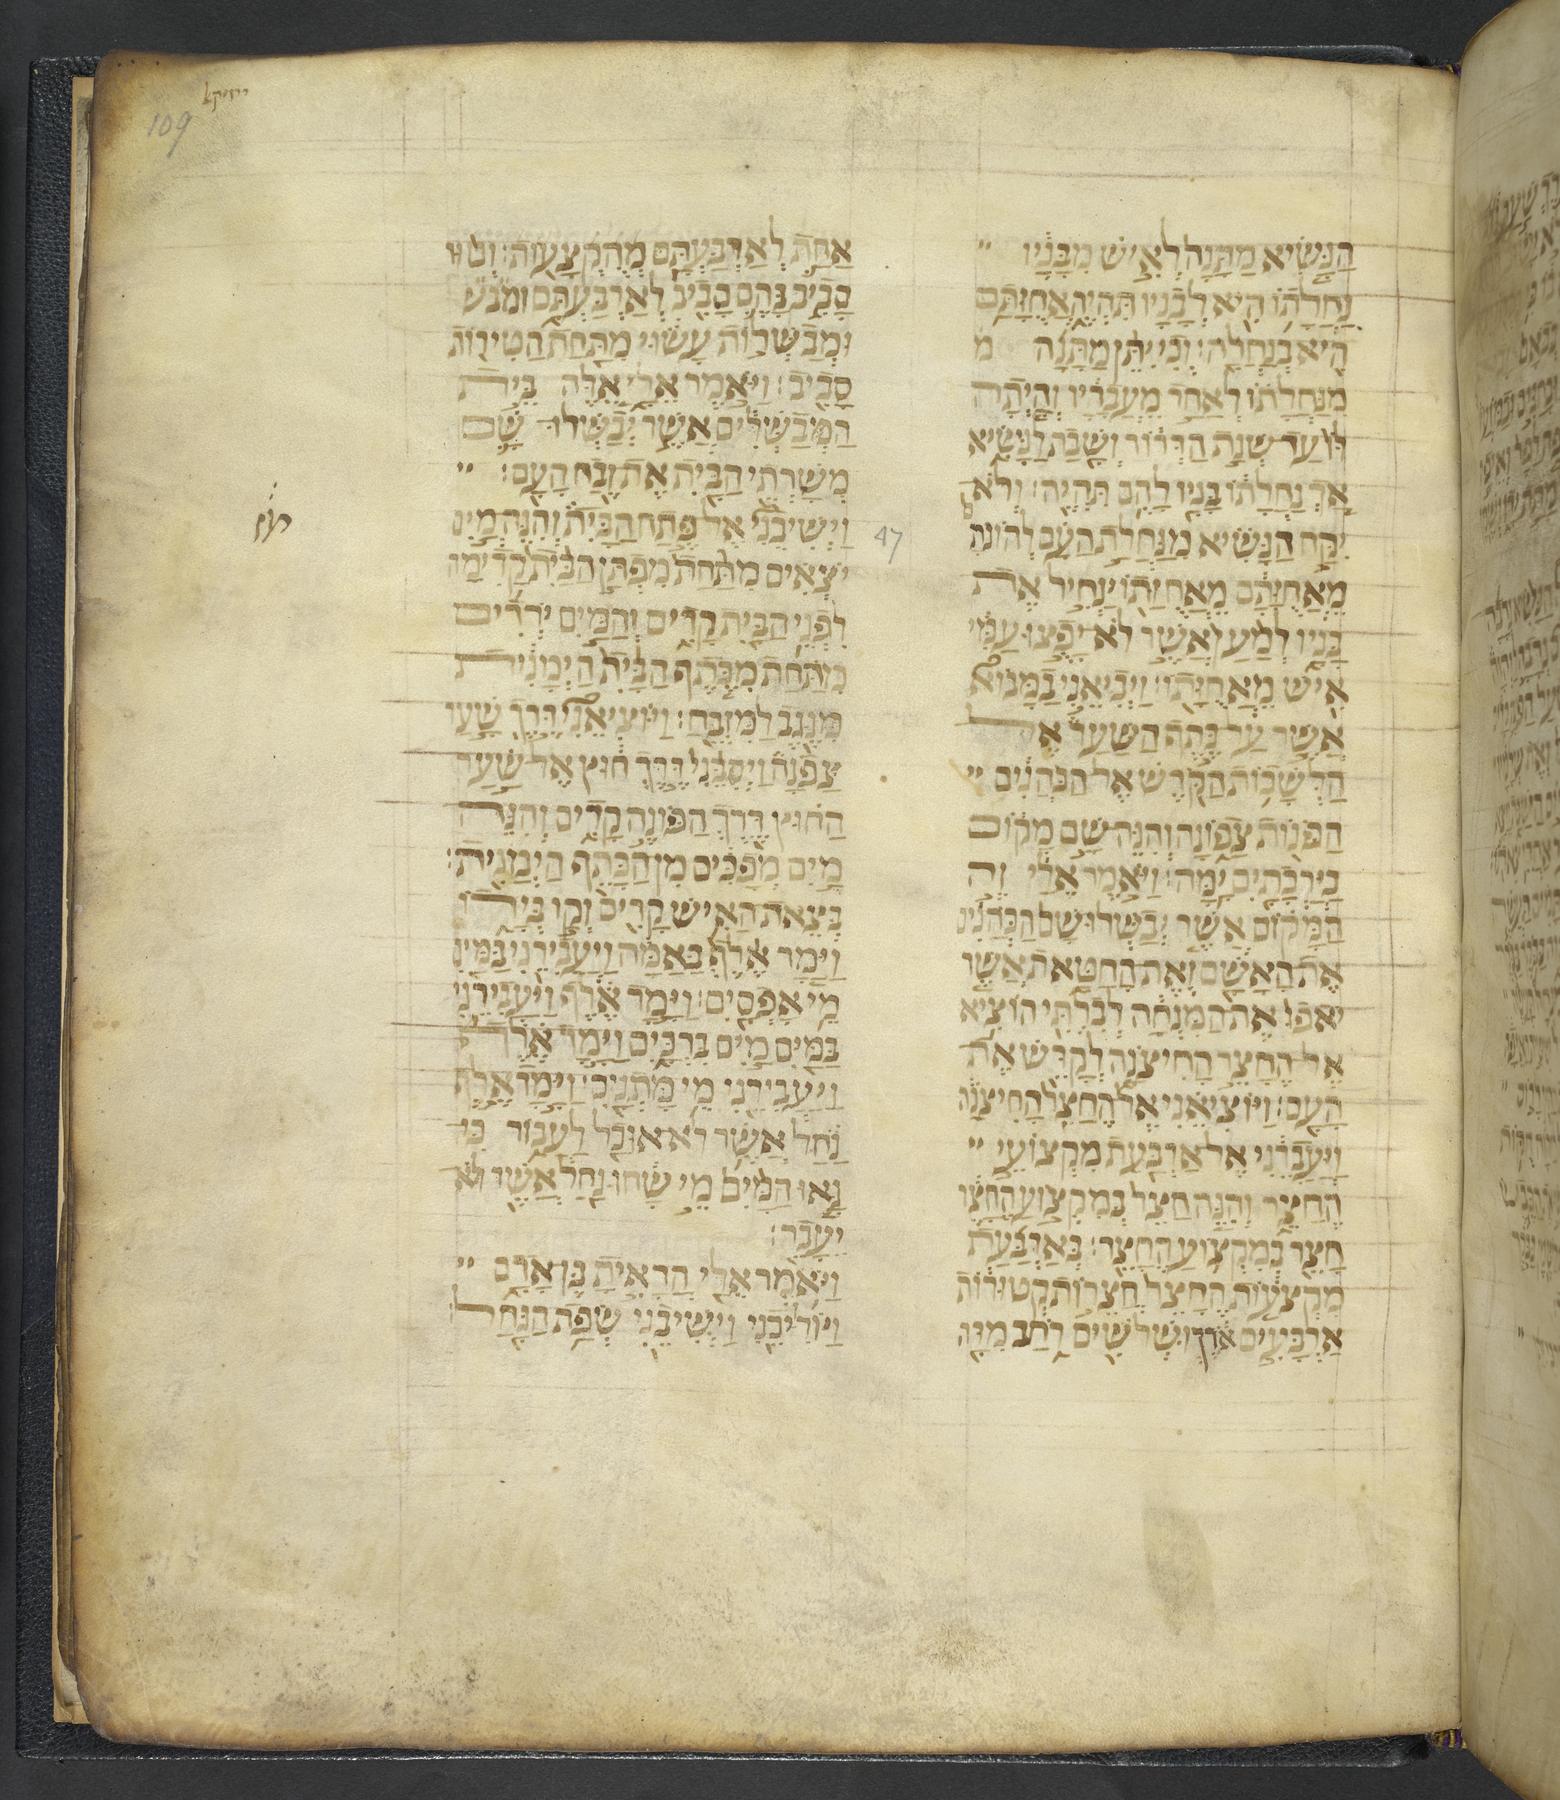 יחזקאל
109
הנשיא מתנה לאיש מבניו
נחלתו היא לבניו תהיה אחזתם
היא בנחלה: וכי יתן מתנה מ
מנחלתו לאחד מעבדיו והיתה
לו עד שנת הדרור ושבת לנשיא
אך נחלתו בניו להם תהיה: ולא
יקח הנשיא מנחלת העם להונת
מאחזתם מאחזתו ינחיל את
בניו למען אשר לא יפצו עמי
איש מאחזתו: ויביאני במבוא
אשר על כתף השער אל
הלשכות הקדש אל הכהנים
הפנות צפונה והנה שם מקום
בירכתים ימה: ויאמר אלי זה
המקום אשר יבשלו שם הכהנים
את האשם ואת החטאת אשר
יאפו את המנחה לבלתי הוציא
אל החצר החיצנה לקדש את
העם: ויוציאני אל החצר החיצנה
ויעברני אל ארבעת מקצועי
החצר והנה חצר במקצוע החצר
חצר במקצוע החצר: בארבעת
מקצעות החצר חצרות קטורות
ארבעים ארך ושלשים רחב מדה
אחת לארבעתם מהקצעות: וטו
סביב בהם סביב לארבעתם ומבש
ומבשלות עשוי מתחת הטירות
סביב: ויאמר אלי אלה בית
המבשלים אשר יבשלו שם
משרתי הבית את זבח העם:
47
וישיבני אל פתח הבית והנה מים
יצאים מתחת מפתן הבית קדימה
לפני הבית קדים והמים ירדים
מתחת מכתף הבית הימנית
מנגב למזבח: ויוציאני דרך שער
צפונה ויסבני דרך חוץ אל שער
החוץ דרך הפונה קדים והנה
מים מפכים מן הכתף הימנית:
בצאת האיש קדים וקו בידו
וימד אלף באמה ויעבירני במים
מי אפסים: וימד אלף ויעבירני
במים מים ברכים וימד אלף
ויעבירני מי מתנים: וימד אלף
נחל אשר לא אוכל לעבור כי
גאו המים מי שחו נחל אשר לא
יעבר:
ויאמר אלי הראית בן אדם
ויולכני וישיבני שפת הנחל: